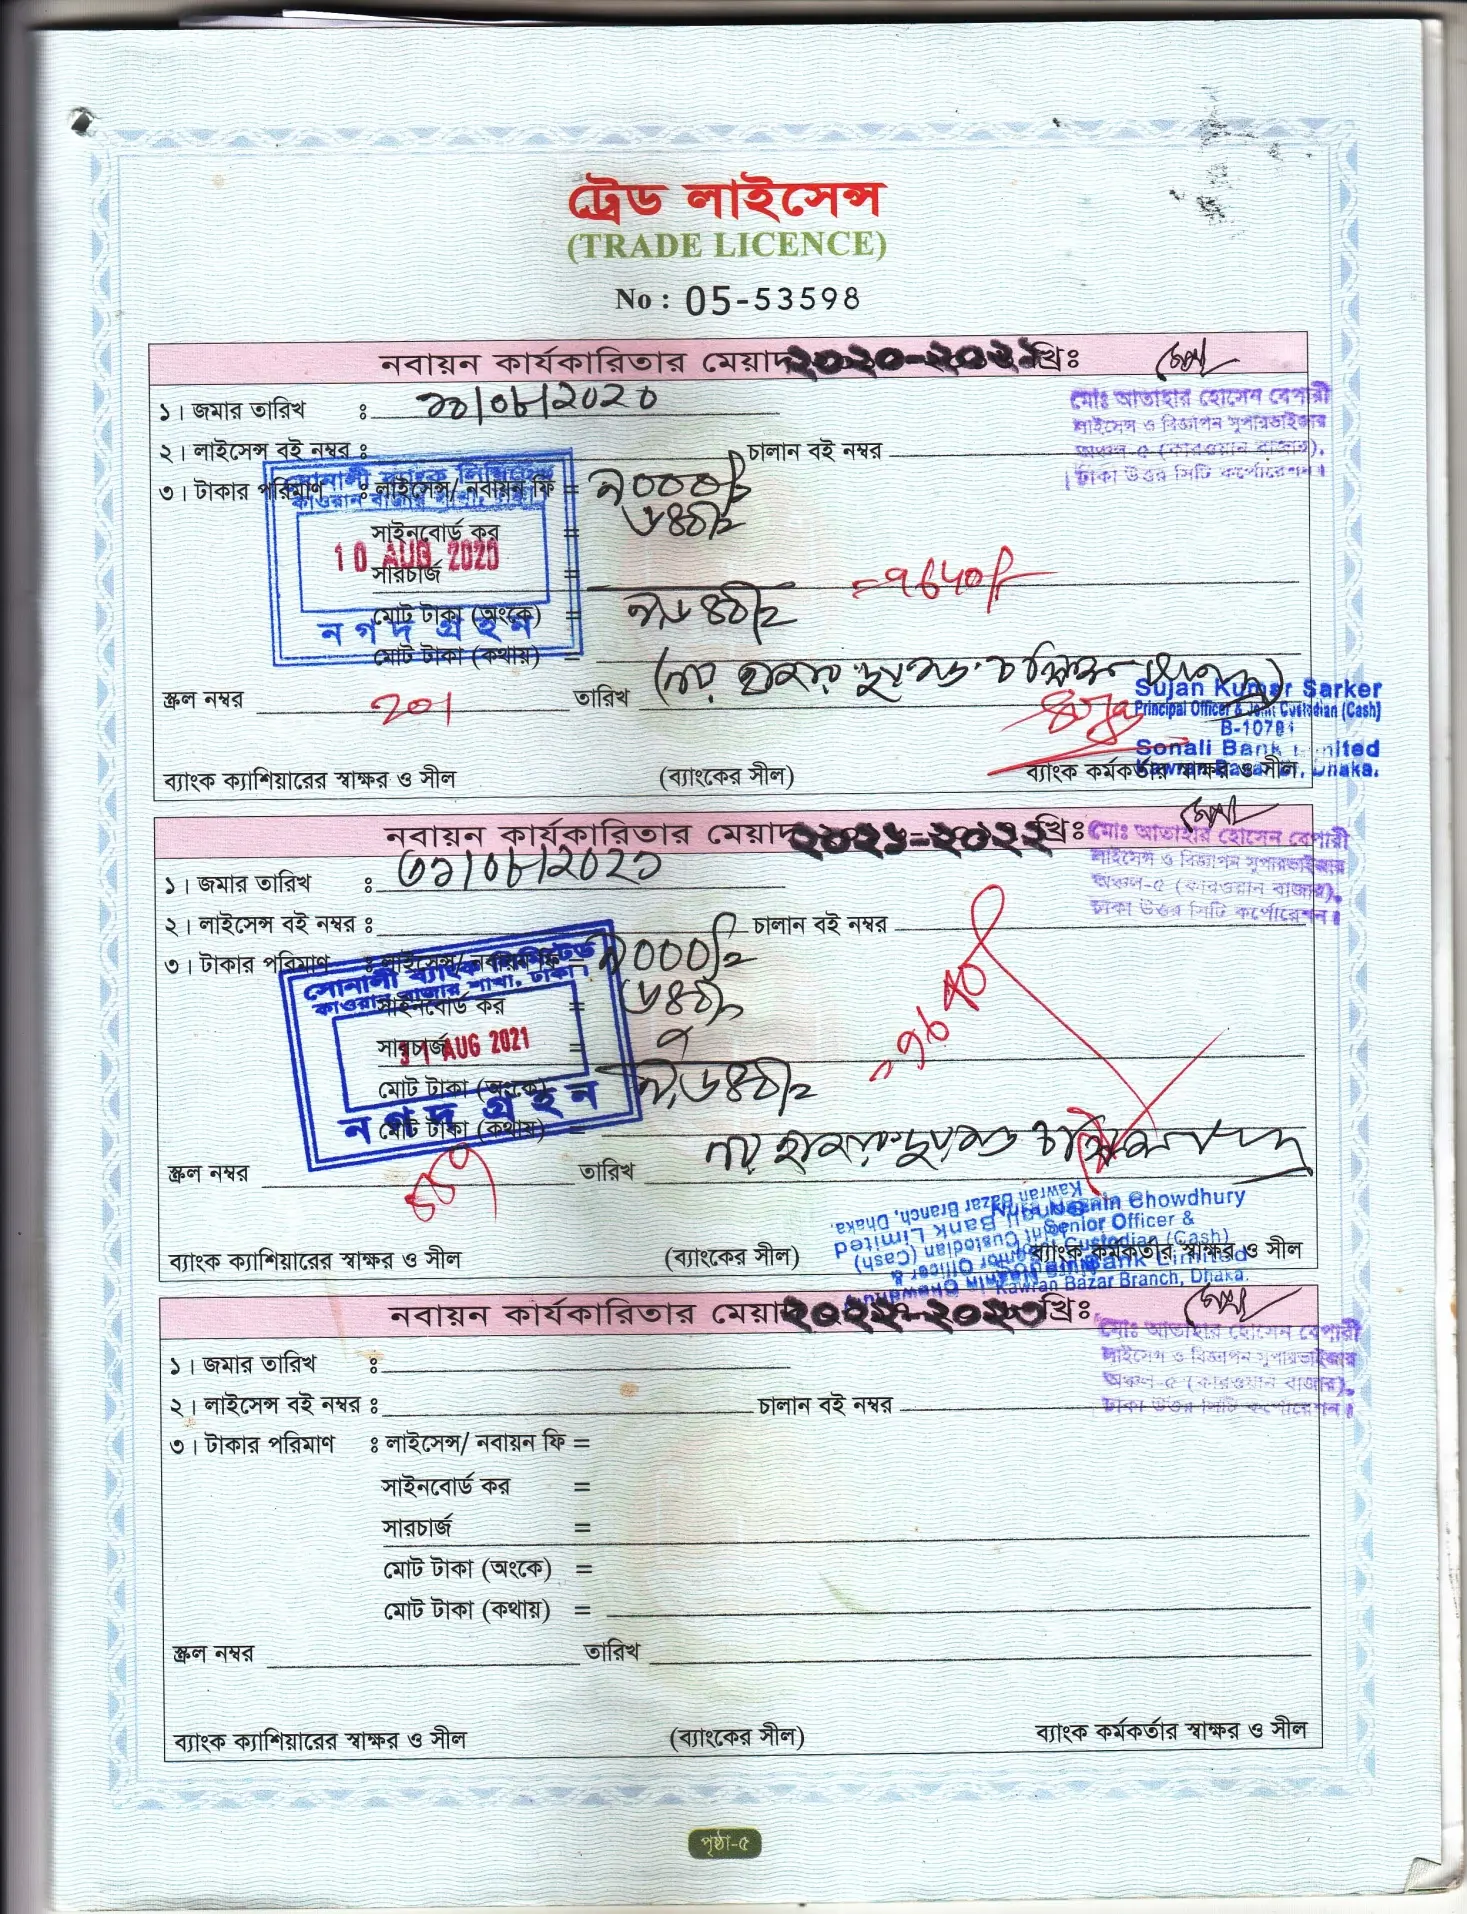 ট্রেড লাইসেন্স
(TRADE LICENCE)
No : 05-53598
নবায়ন কার্যকারিতার মেয়াদ ২০২০-২০২১ খ্রিঃ
মোঃ আতাহার হোসেন বেপারী
লাইসেন্স ও বিজ্ঞাপন সুপারভাইজার
অঞ্চল-৫ (কারওয়ান বাজার),
ঢাকা উত্তর সিটি কর্পোরেশন।
১। জমার তারিখ : ১০/০৮/২০২০
২। লাইসেন্স বই নম্বর : চালান বই নম্বর
৩। টাকার পরিমাণ : লাইসেন্স/ নবায়ন ফি =
সোনালী ব্যাংক লিমিটেড
কাওরান বাজার শাখা, ঢাকা।
সাইনবোর্ড কর = ৬৪০/=
10 AUG 2020
সারচার্জ =
মোট টাকা (অংকে) =
নগদ গ্রহন
মোট টাকা (কথায়) =
স্ক্রল নম্বর 201 তারিখ
Sujan Kumar Sarker
Principal Officer & Joint Custodian (Cash)
Sonali Bank Limited
Kawran Bazar Br., Dhaka.
ব্যাংক ক্যাশিয়ারের স্বাক্ষর ও সীল (ব্যাংকের সীল) ব্যাংক কর্মকর্তার স্বাক্ষর ও সীল
নবায়ন কার্যকারিতার মেয়াদ ২০২১-২০২২ খ্রিঃ
মোঃ আতাহার হোসেন বেপারী
লাইসেন্স ও বিজ্ঞাপন সুপারভাইজার
অঞ্চল-৫ (কারওয়ান বাজার),
ঢাকা উত্তর সিটি কর্পোরেশন।
১। জমার তারিখ : ৩১/০৮/২০২১
২। লাইসেন্স বই নম্বর : চালান বই নম্বর
৩। টাকার পরিমাণ : লাইসেন্স/ নবায়ন ফি =
সোনালী ব্যাংক লিমিটেড
কাওরান বাজার শাখা, ঢাকা।
সাইনবোর্ড কর = ৬৪০/=
সারচার্জ =
31 AUG 2021
মোট টাকা (অংকে) =
নগদ গ্রহন
মোট টাকা (কথায়) =
স্ক্রল নম্বর তারিখ
Chowdhury
Senior Officer &
Joint Custodian (Cash)
Sonali Bank Limited
Kawran Bazar Branch, Dhaka.
ব্যাংক ক্যাশিয়ারের স্বাক্ষর ও সীল (ব্যাংকের সীল) ব্যাংক কর্মকর্তার স্বাক্ষর ও সীল
নবায়ন কার্যকারিতার মেয়াদ ২০২২-২০২৩ খ্রিঃ
মোঃ আতাহার হোসেন বেপারী
লাইসেন্স ও বিজ্ঞাপন সুপারভাইজার
অঞ্চল-৫ (কারওয়ান বাজার),
ঢাকা উত্তর সিটি কর্পোরেশন।
১। জমার তারিখ :
২। লাইসেন্স বই নম্বর : চালান বই নম্বর
৩। টাকার পরিমাণ : লাইসেন্স/ নবায়ন ফি =
সাইনবোর্ড কর =
সারচার্জ =
মোট টাকা (অংকে) =
মোট টাকা (কথায়) =
স্ক্রল নম্বর তারিখ
ব্যাংক ক্যাশিয়ারের স্বাক্ষর ও সীল (ব্যাংকের সীল) ব্যাংক কর্মকর্তার স্বাক্ষর ও সীল
পৃষ্ঠা-৫